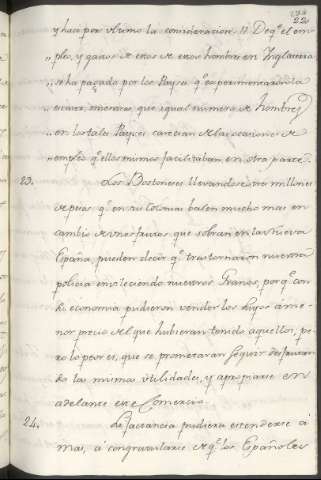 22
y hace por ultimo la consideracion. 11 De q.e el em
"pleo, y gasto de esos hombres en Inglaterra
"se ha pagado por los Payses q.e experimentaron la
"escasez, mientras que igual numero de hombres
"en los tales Payses carecian de las ocasiones de
"empleo q.e ellos mismos facilitaban en otra parte.
23. Los Bostoneses llevandose tres millones
de pesos q.e en su Colonia balen mucho mas en
cambio de unos frutos que sobran en la Nueva
España, pueden decir q.e trastornaron nuestra
policia envileciendo nuestros Granos, por q.e con
economia pudieron vender los suyos á me
nor precio del que hubieran tenido aquellos, pe
ro lo peor es, que se prometeran seguir disfrutan
do las mismas utilidades, y apropiarse en
adelante este Comercio.
24. La jactancia pudiera estenderse á
mas, á congratularse de q.e los Españoles